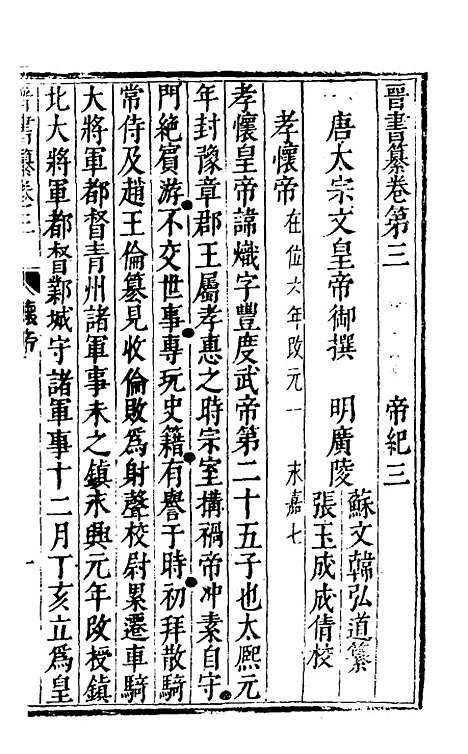 晉書纂卷第三　帝紀三
唐太宗文皇帝御撰　明廣陵
蘇文韓弘道纂
張玉成成倩校
孝懷帝 在位六年改元一 永嘉七
孝懷皇帝諱熾字豐度武帝第二十五子也太熙元
年封豫章郡王屬孝惠之時宗室構禍帝冲素自守
門絕賓游不交世事專玩史籍有譽于時初拜散騎
常侍及趙王倫篡見收倫敗為射聲校尉累遷車騎
大將軍都督青州諸軍事未之鎮永興元年改授鎮
北大將軍都督鄴城守諸軍事十二月丁亥立為皇
晉書纂卷三 懷帝 一